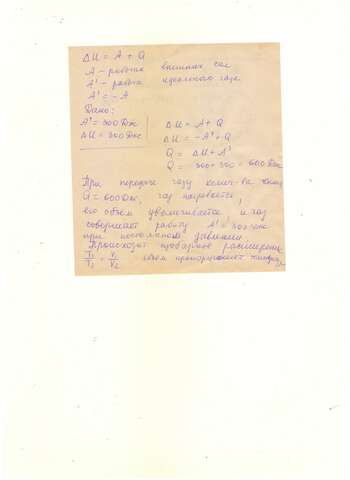 ΔU = A + Q
A – работа внешних сил
A' – работа идеального газа
A' = – A
Дано:
A' = 300 Дж
ΔU = 300 Дж
ΔU = A + Q
ΔU = –A' + Q
Q = ΔU + A'
Q = 300 + 300 = 600 Дж
При передаче газу колич-ва тепла
Q = 600 Дж, газ нагревается,
его объем увеличивается и газ
совершает работу A' = 300 Дж
при постоянном давлении
Происходит изобарное расширение
T₁/T₂ = V₁/V₂ объем пропорционален